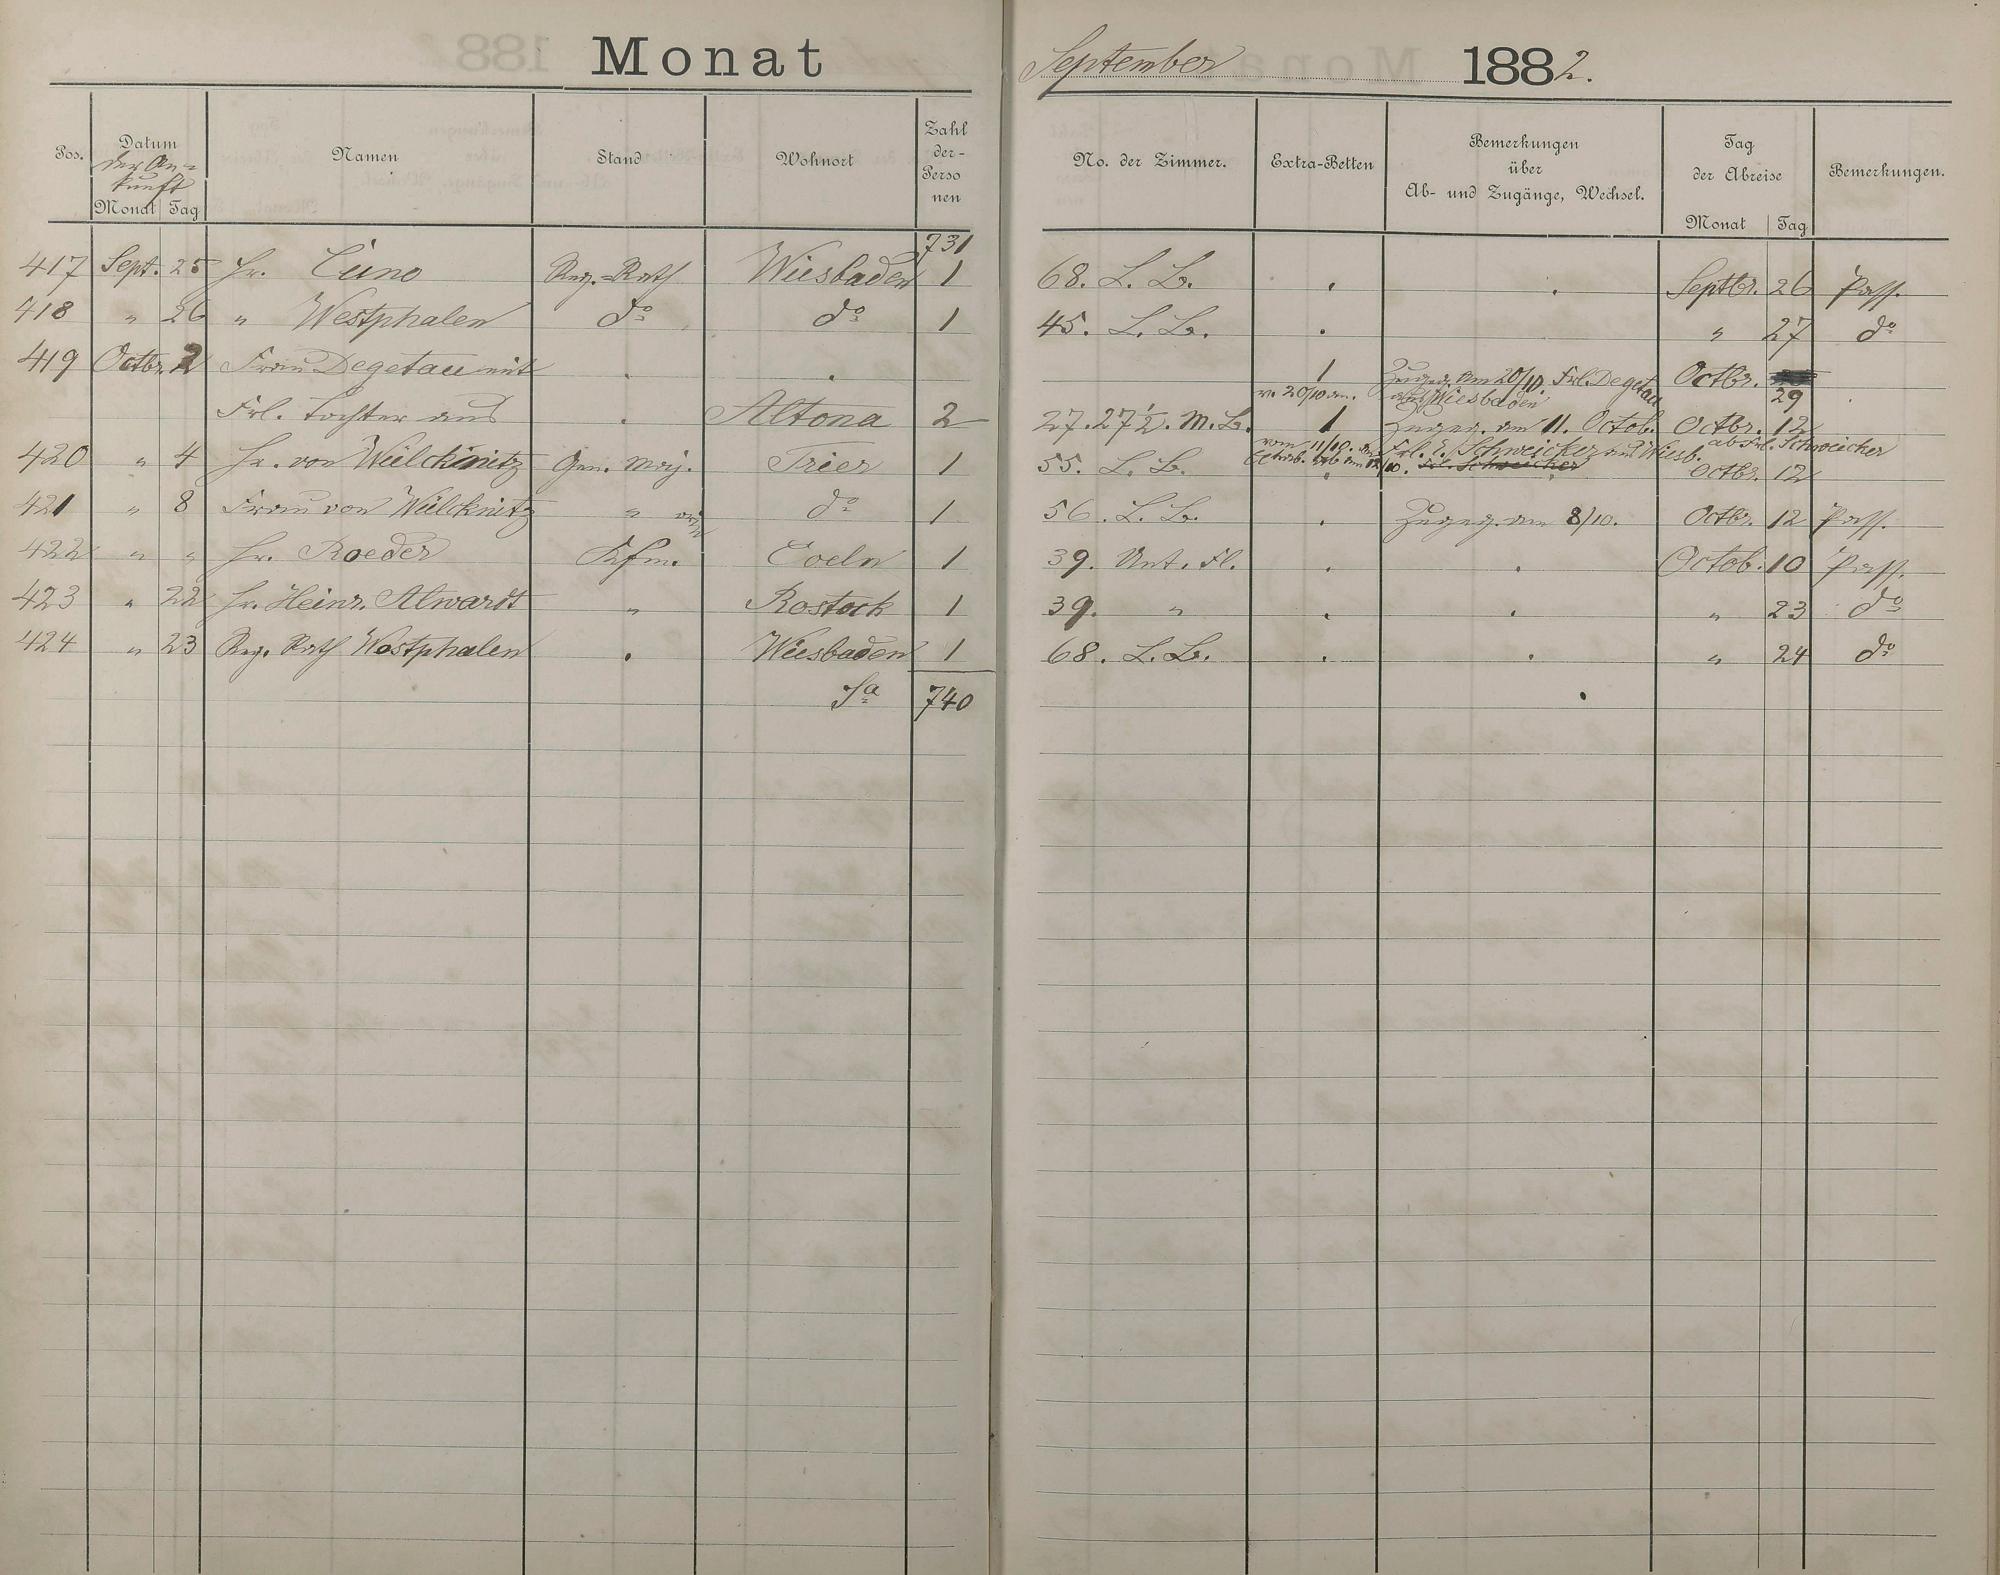 Monat September 1882.
Pos. Datum der Ankunft Monat Tag Namen Stand Wohnort Zahl der Personen No. der Zimmer. Extra-Betten Bemerkungen über Ab- und Zugänge, Wechsel. Tag der Abreise Monat Tag Bemerkungen.
731
417 Sept. 25 Hr. Cuno Reg.-Rath Wiesbaden 1 68. L. B. . . Septbr. 26 Pass.
418 " 26 " Westphalen do do 1 45. L. B. . " 27 do
419 Octbr. 2 Frau Degetau mit . . 1 Zugeg. am 20/10. Frl. Degetau Octbr.
v. 20/10 an. aus Wiesbaden 29
Frl. Tochter aus . Altona 2 27. 27½. M. B. 1 Zugeg. am 11. Octob. Octbr. 12
vom 11/10. an Frl. E. Schweicker aus Wiesb. ab Frl. Schweicker
420 " 4 Hr. von Wülcknitz Gen. Maj. Trier 1 55. L. B. . Frl. Schweicker . Octbr. 12
421 " 8 Frau von Wülcknitz " do 1 56. L. B. . Zugeg. am 8/10. Octbr. 12 Pass.
422 " " Hr. Roeder Kfm. Coeln 1 39. Unt. Fl. . . Octob. 10 Pass.
423 " 22 Hr. Heinr. Alwardt " Rostock 1 39. " . . " 23 do
424 " 23 Reg. Rath Westphalen . Wiesbaden 1 68. L. B. . . " 24 do
Sa 740